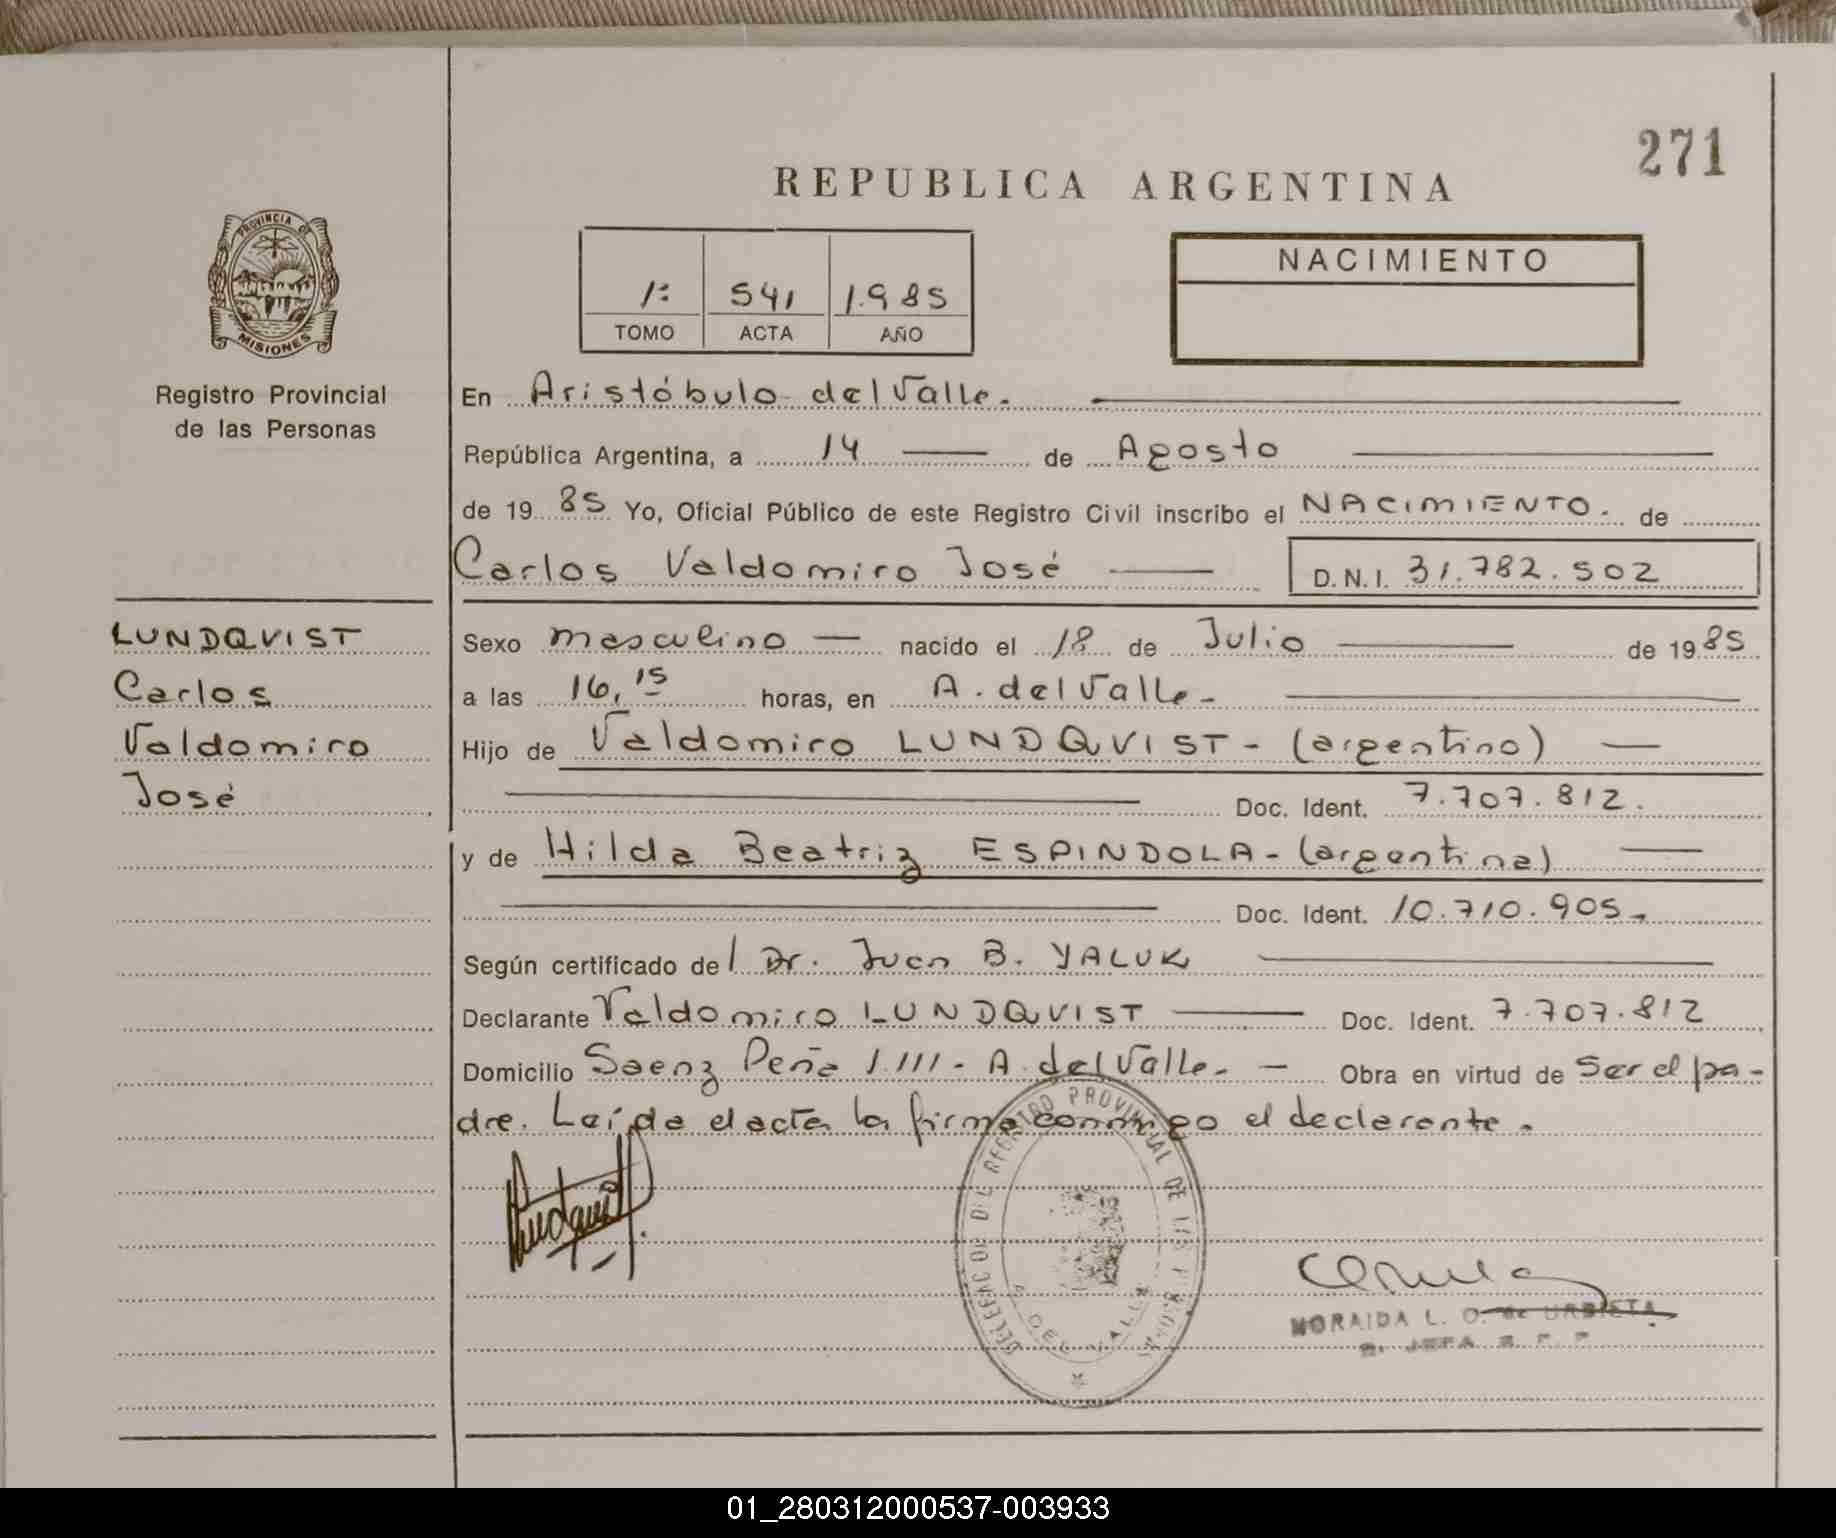 271
REPUBLICA ARGENTINA
PROVINCIA DE
MISIONES
Registro Provincial
de las Personas
1º 541 1.985
TOMO ACTA AÑO
NACIMIENTO
En Aristóbulo del Valle.
República Argentina, a 14 de Agosto
de 19 85 Yo, Oficial Público de este Registro Civil inscribo el NACIMIENTO. de
Carlos Valdomiro José D.N.I. 31.782.502
LUNDQVIST
Carlos
Valdomiro
José
Sexo masculino nacido el 18 de Julio de 19 85
a las 16,15 horas, en A. del Valle-
Hijo de Valdomiro LUNDQVIST - (argentino)
Doc. Ident. 7.707.812.
y de Hilda Beatriz ESPINDOLA - (argentina)
Doc. Ident. 10.710.905.
Según certificado del Dr. Juan B. YALUK
Declarante Valdomiro LUNDQVIST Doc. Ident. 7.707.812
Domicilio Saenz Peña 1.111 - A. del Valle. - Obra en virtud de Ser el pa-
dre. Leída el acta la firma conmigo el declarante.
DELEGACION DEL REGISTRO PROVINCIAL DE LAS PERSONAS
A. DEL VALLE
Lundqvist
MORAIDA L. O. de URBIETA
JEFA
01_280312000537-003933